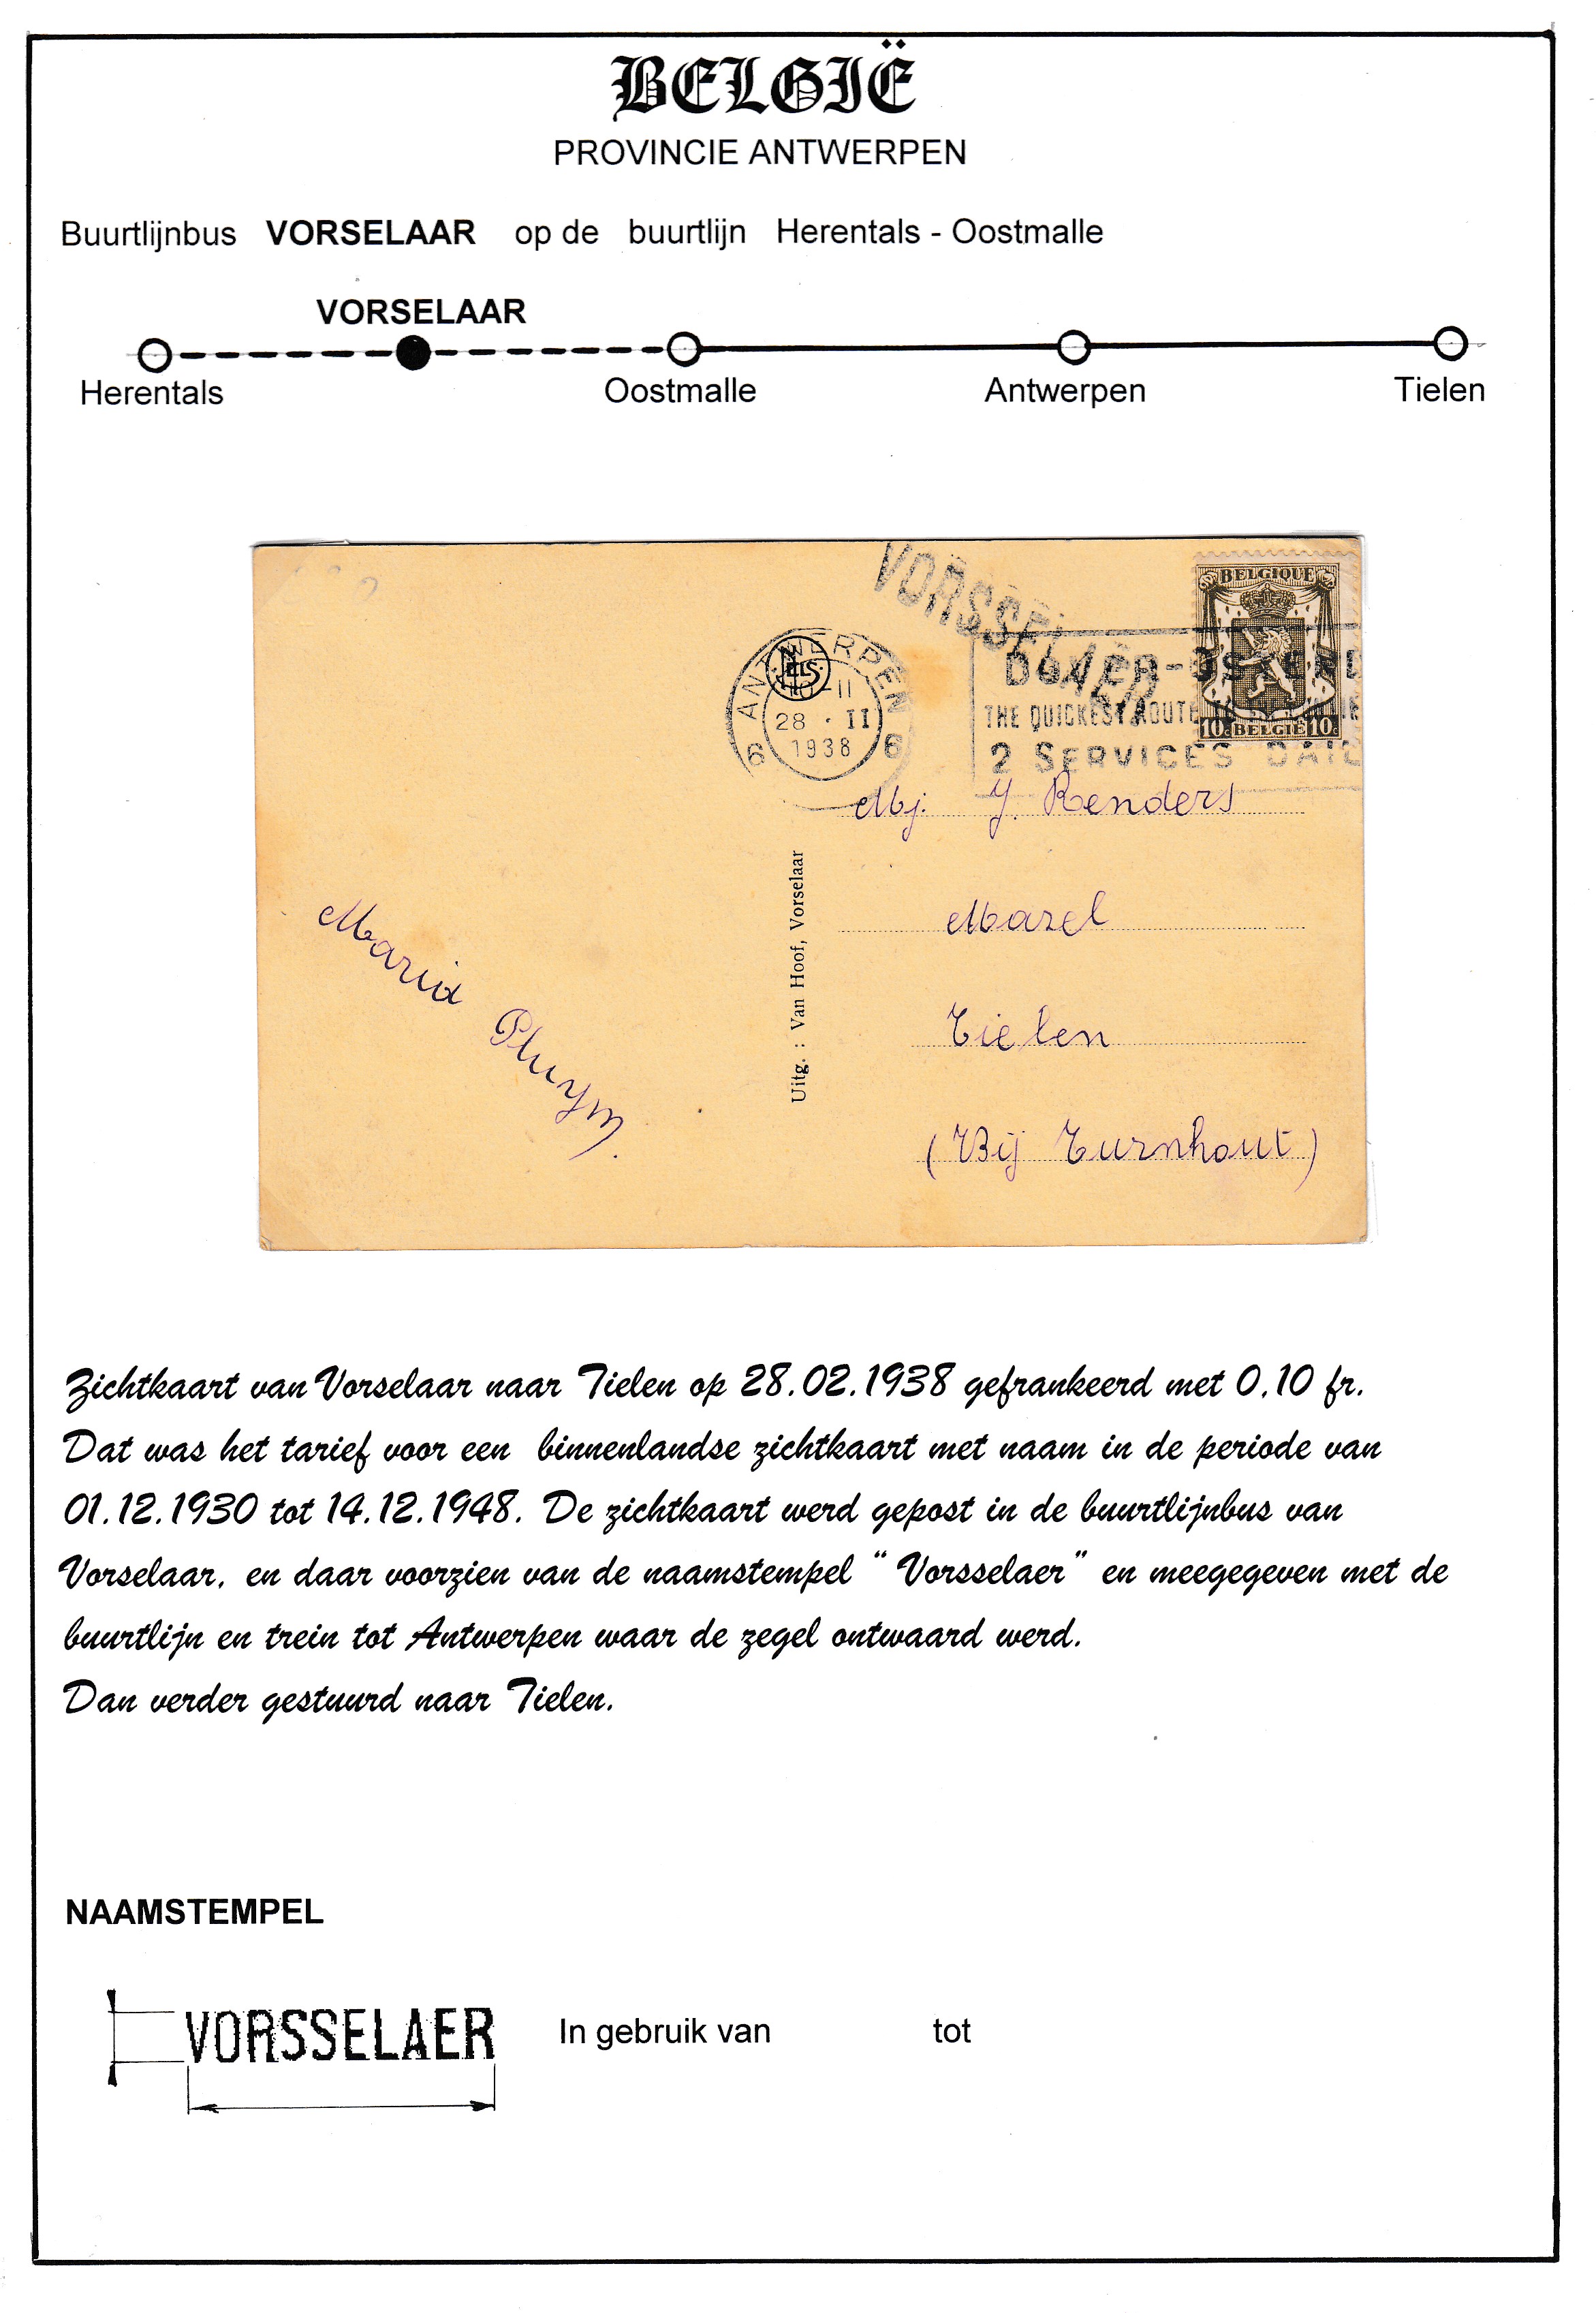 BELGIË
PROVINCIE ANTWERPEN
Buurtlijnbus VORSELAAR op de buurtlijn Herentals - Oostmalle
VORSELAAR
Herentals Oostmalle Antwerpen Tielen
VORSSELAER
BELGIQUE
10c BELGIË 10c
6 ANTWERPEN 6
10-11
28 · II
1938
NELS
DOVER-OSTEND
THE QUICKEST ROUTE
2 SERVICES DAIL
Mej. J. Renders
Mazel
Tielen
(Bij Turnhout)
Uitg. : Van Hoof, Vorselaar
Maria Pluym.
Zichtkaart van Vorselaar naar Tielen op 28.02.1938 gefrankeerd met 0.10 fr.
Dat was het tarief voor een binnenlandse zichtkaart met naam in de periode van
01.12.1930 tot 14.12.1948. De zichtkaart werd gepost in de buurtlijnbus van
Vorselaar, en daar voorzien van de naamstempel " Vorsselaer" en meegegeven met de
buurtlijn en trein tot Antwerpen waar de zegel ontwaard werd.
Dan verder gestuurd naar Tielen.
NAAMSTEMPEL
VORSSELAER In gebruik van tot